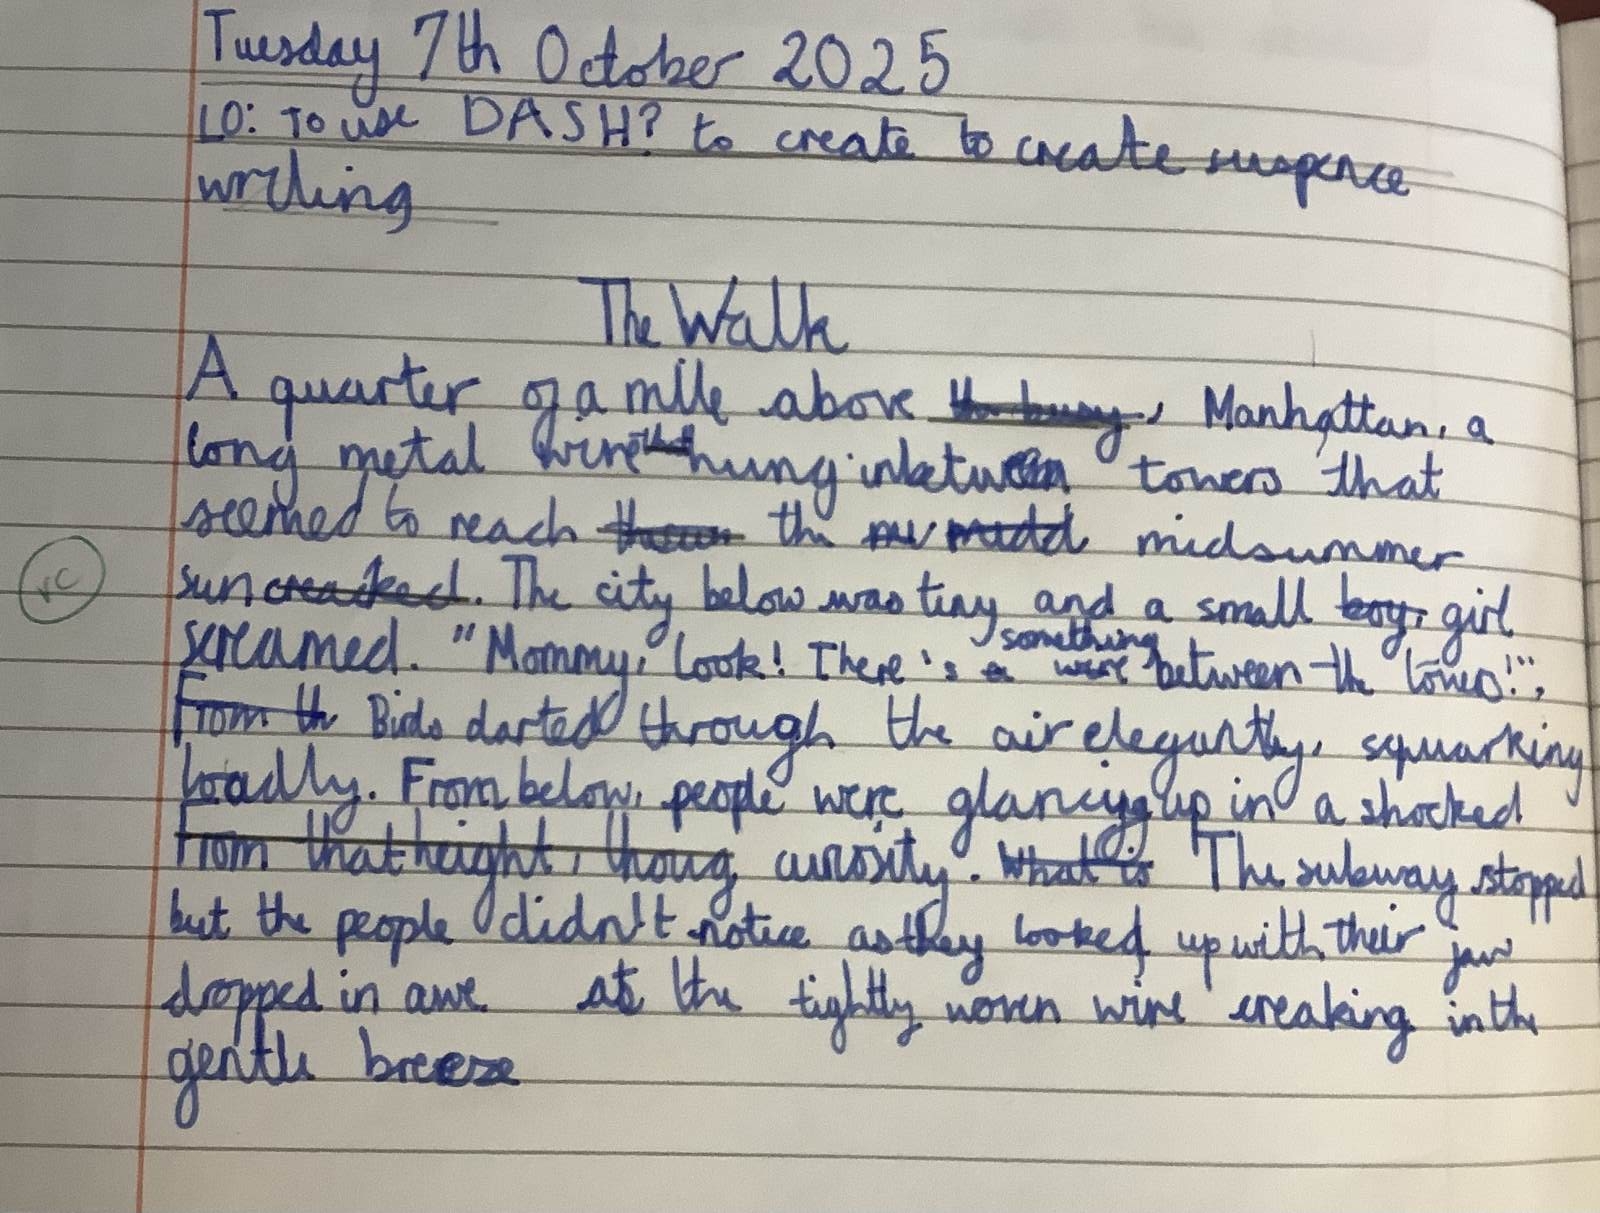 Tuesday 7th October 2025
LO: To use DASH? to create to create suspence
writing
The Walk
A quarter of a mile above the busy, Manhattan, a
long metal wire that hung inbetween towers that
seemed to reach the midd midsummer
sun creaked. The city below was tiny and a small boy, girl
screamed. "Mommy, look! There's a something were between the towers!",
From the Birds darted through the air elegantly, squarking
loadly. From below, people were glancing up in a shocked
From that height, thoug curiosity. What is The subway stopped
but the people didn't notice as they looked up with their jaw
dropped in awe at the tightly woven wire creaking in the
gentle breeze
VC